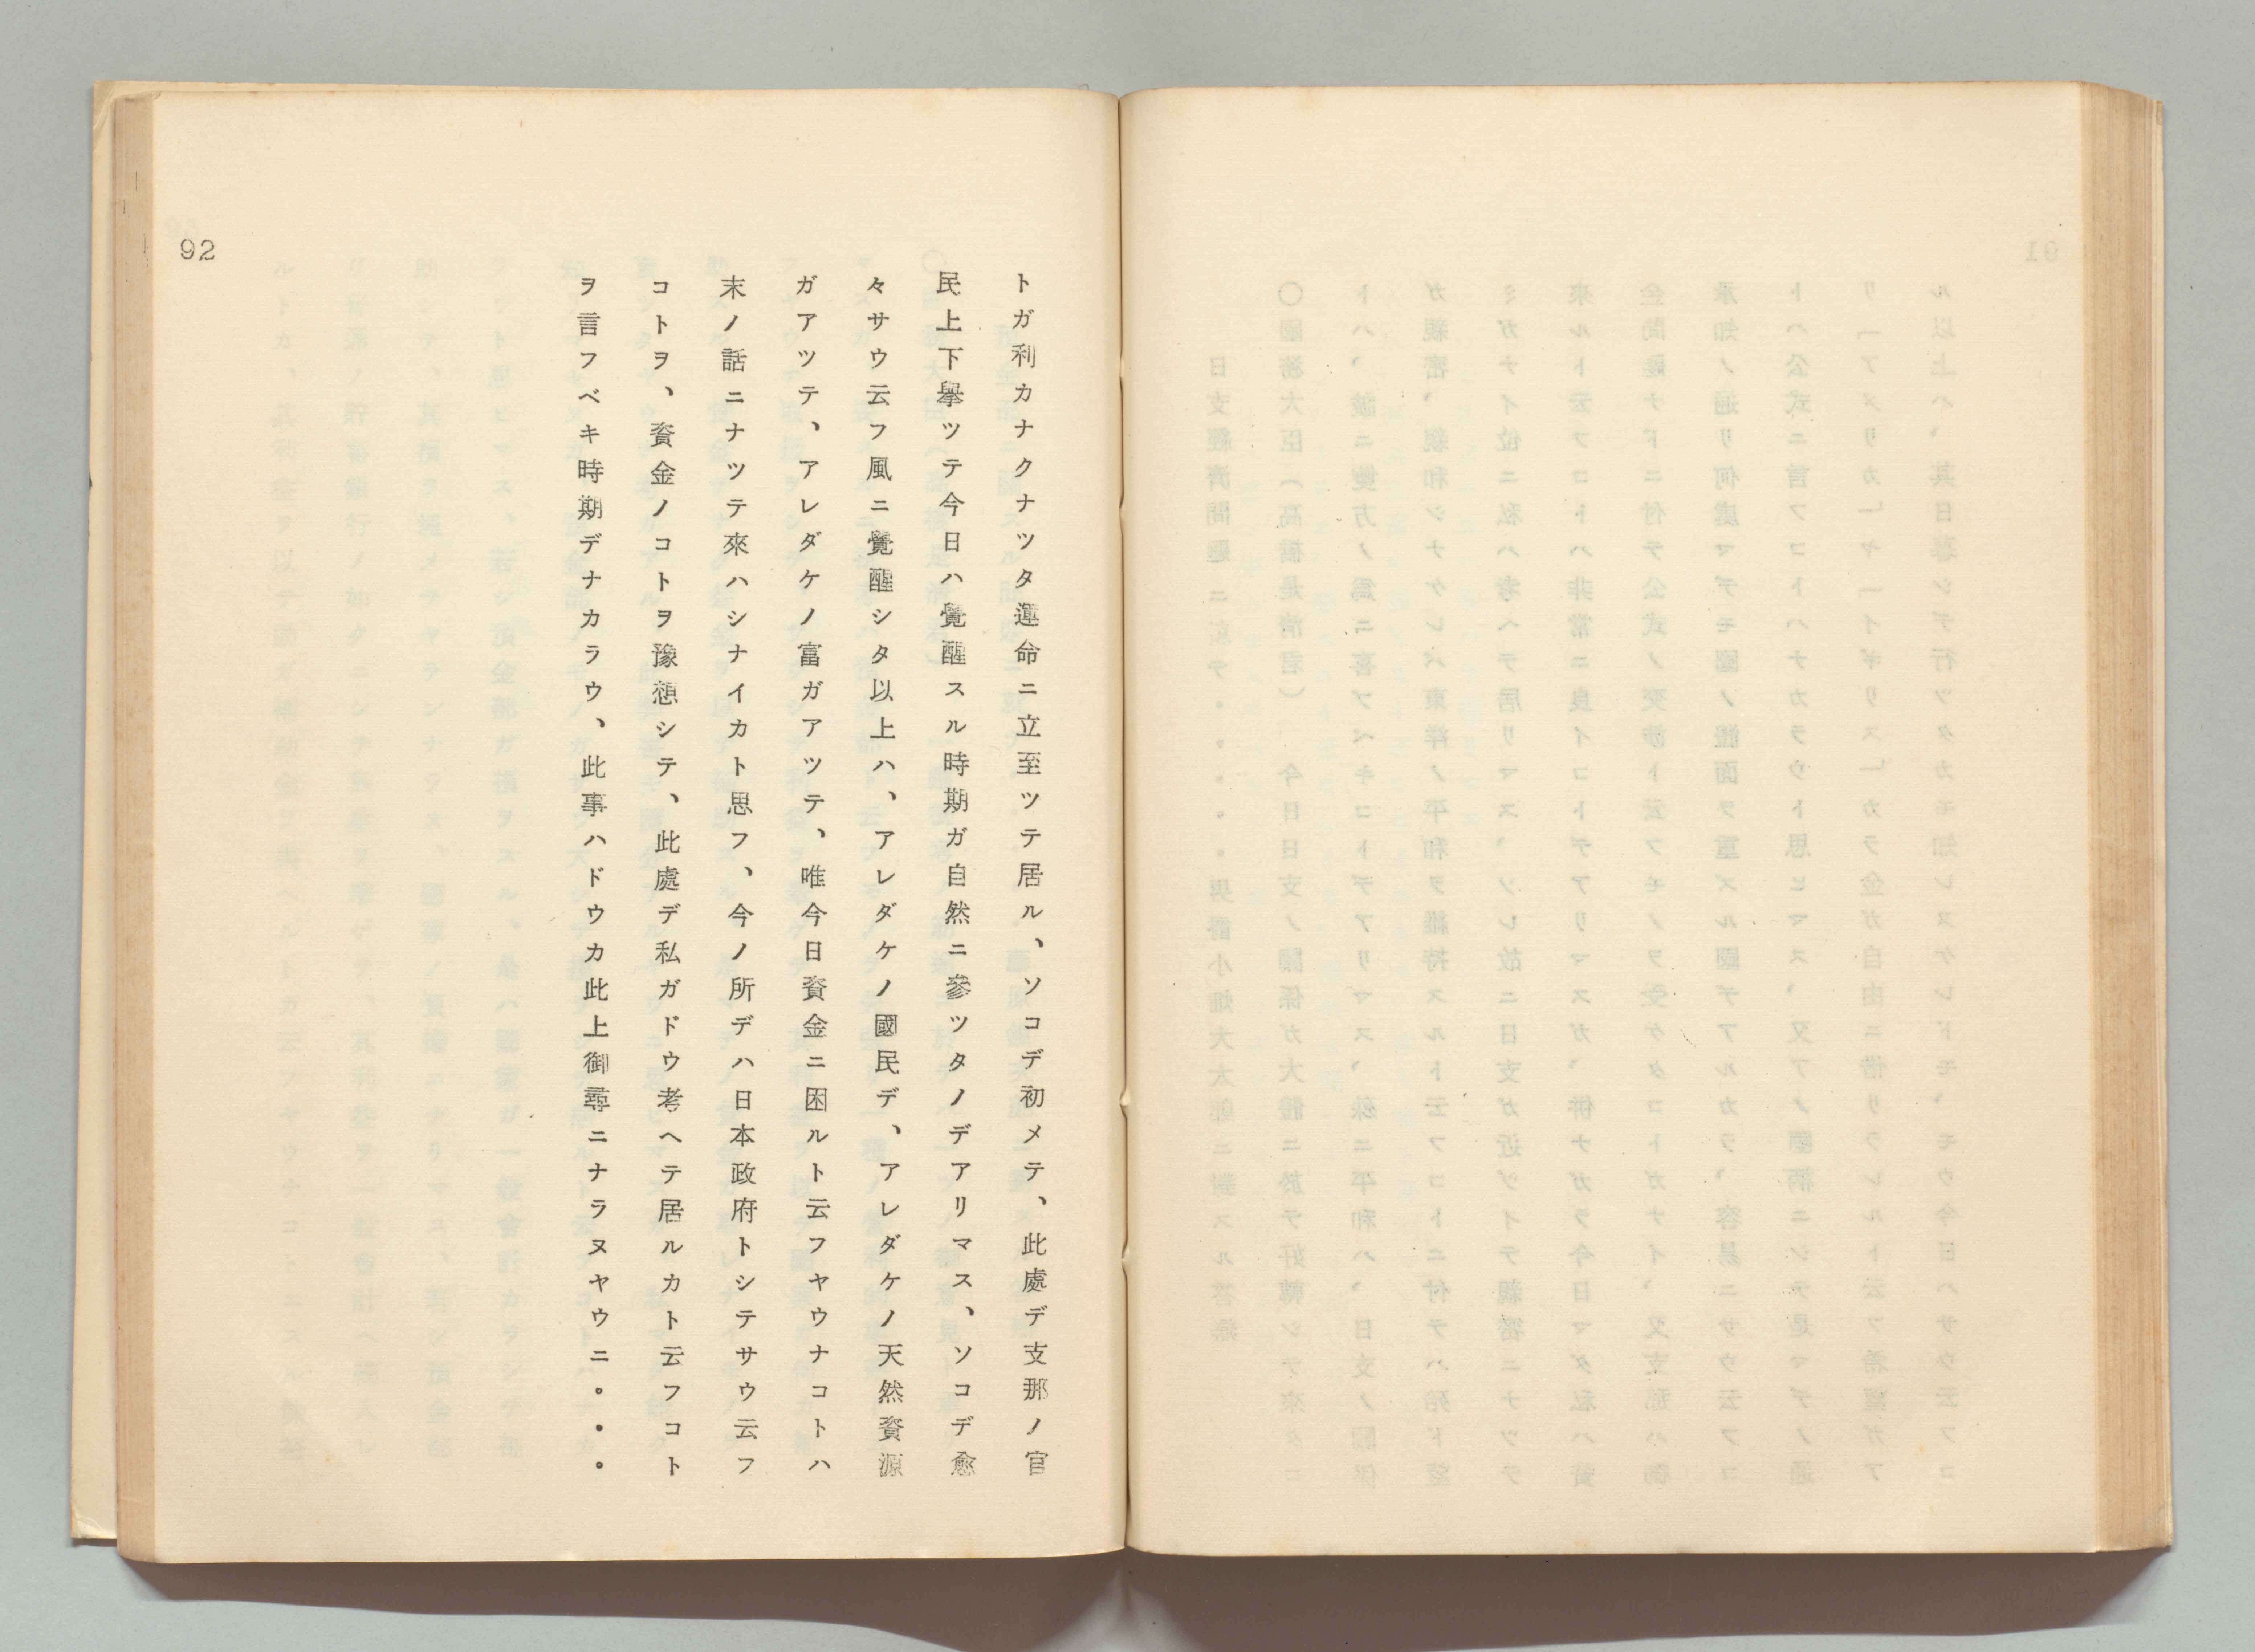 トガ利カナクナツタ運命ニ立至ツテ居ル、ソコデ初メテ、此處デ支那ノ官
民上下擧ツテ今日ハ覺醒スル時期ガ自然ニ參ツタノデアリマス、ソコデ愈
々サウ云フ風ニ覺醒シタ以上ハ、アレダケノ國民デ、アレダケノ天然資源
ガアツテ、アレダケノ富ガアツテ、唯今日資金ニ困ルト云フヤウナコトハ
末ノ話ニナツテ來ハシナイカト思フ、今ノ所デハ日本政府トシテサウ云フ
コトヲ、資金ノコトヲ豫想シテ、此處デ私ガドウ考ヘテ居ルカト云フコト
ヲ言フベキ時期デナカラウ、此事ハドウカ此上御尋ニナラヌヤウニ。・。
92